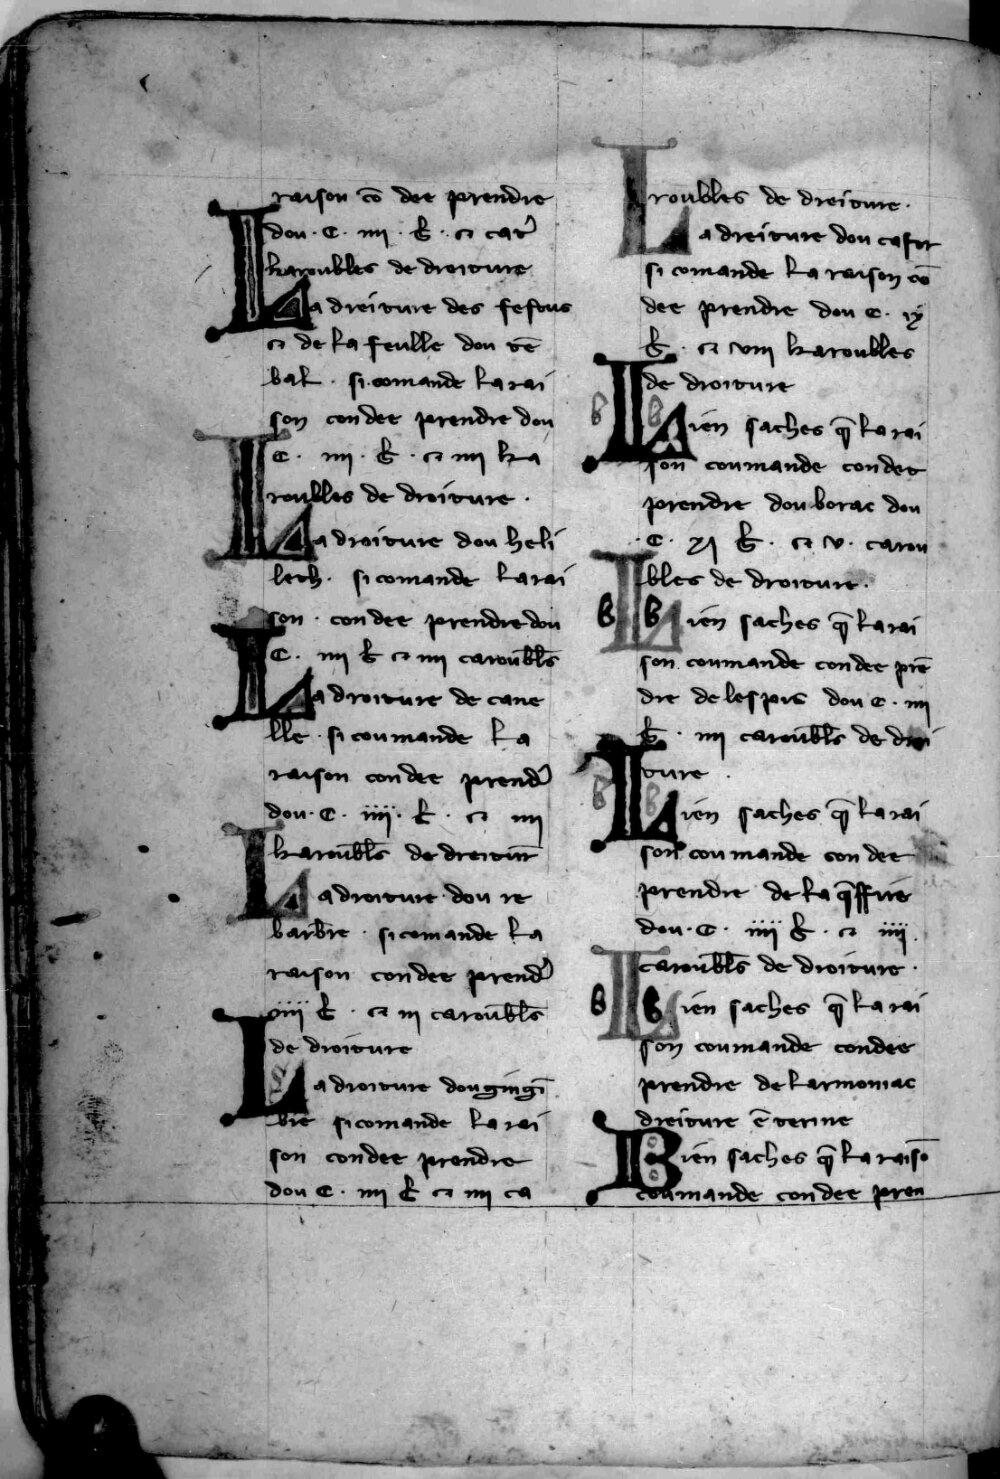 raison cō dee prendre
dou · C · iiii · B̄ · et catr̄
karoubles de droiture
La dreiture des festus
et de la feulle dou tē
bal · si comande la rai
son con dee prendre dou
C · iiii · B̄ · et iiii ka
roubles de droiture ·
La droiture dou heli
lech · si comande la rai
son · con dee prendre dou
C · iiii B̄ et iiii caroubl̄s
La droiture de cane
lle · si coumande la
raison con dee prendr̄
dou · C · iiii · B̄ · et iiii
karoubl̄s de dreitur̄
La droiture dou re
barbre · si comande la
raison con dee prendr̄
iiii B̄ · et iii caroubl̄s
de droiture
La droiture dou gingī
bre si comande la rai
son con dee prendre
dou C · iiii B̄ et iiii ca
roubles de dreiture ·
La dreiture dou
si comande la raison cō
dee prendre dou C · ix
B̄ · et viii karoubles
de droiture
Bien saches q̄ la rai
son coumande con dee
prendre dou borac dou
· C · xi B̄ · et v · carou
bles de droiture ·
Bien saches q̄ la rai
son coumande con dee prē
dre de lespic dou C · iiii
B̄ · iiii caroubl̄s de droi
ture ·
Bien saches q̄ la rai
son coumande con dee
prendre de la
dou · C · iiii B̄ · et iiii ·
caroubl̄s de droiture ·
Bien saches q̄ la rai
son coumande con dee
prendre de larmoniac
dreiture ē terine
Bien saches q̄ la raisō
coumande con dee pren